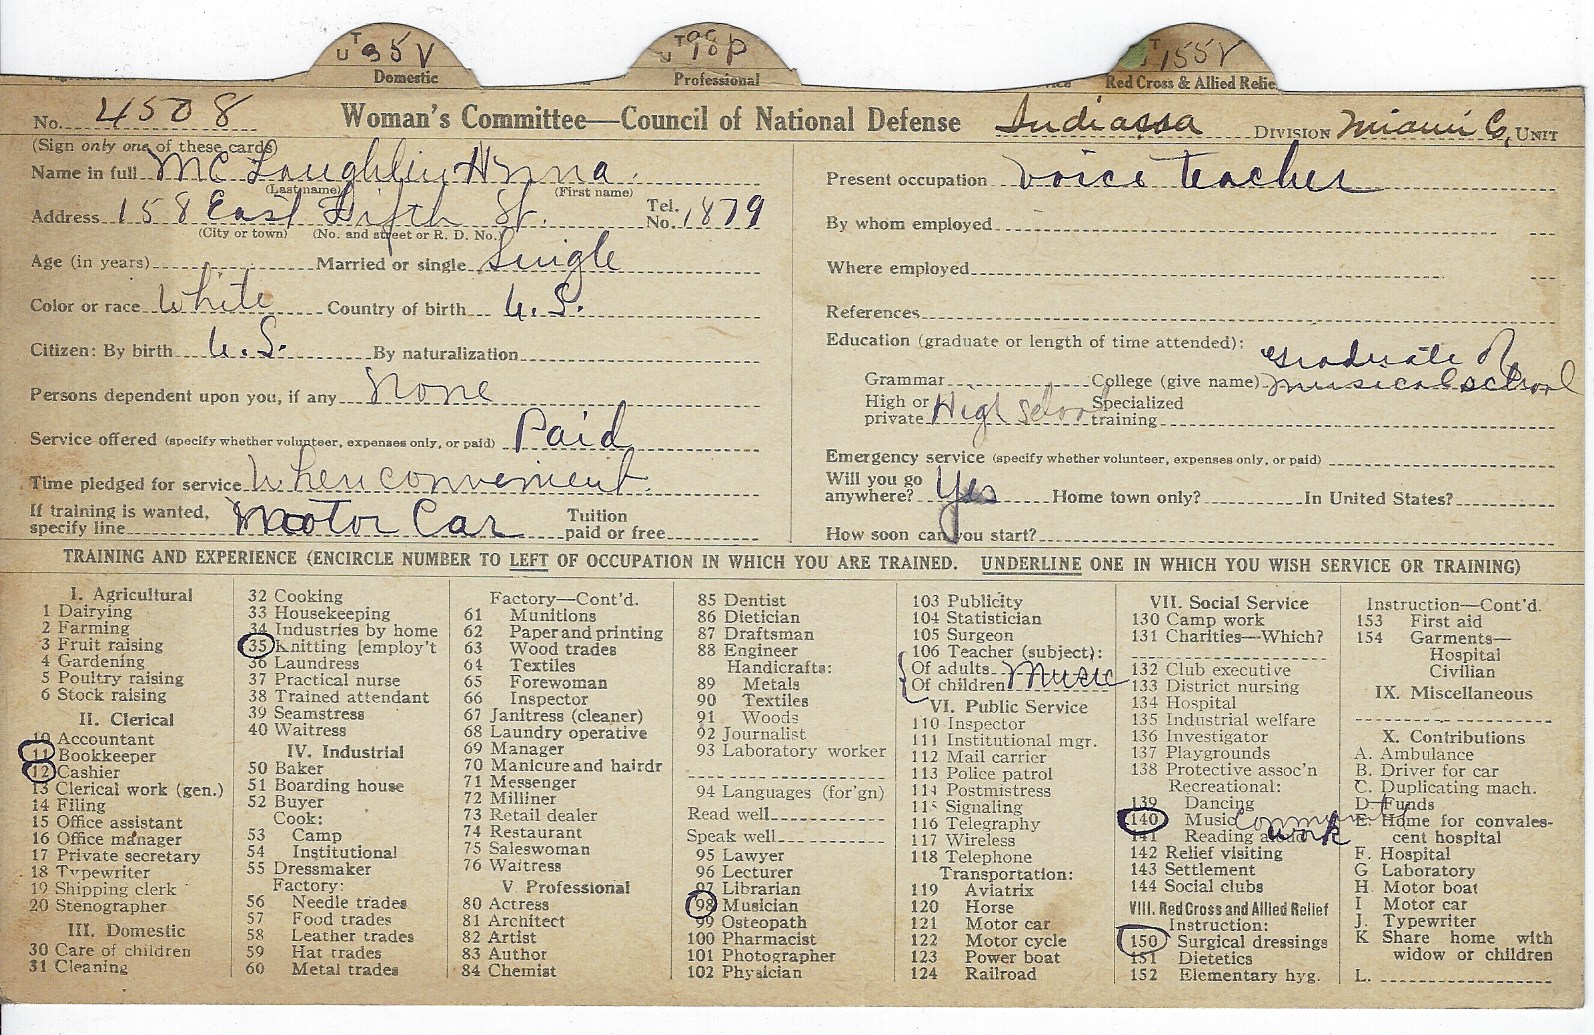 U T 35 V
Domestic
U T 98 P
Professional
T 155 V
Red Cross & Allied Relie
No. 4508 Woman's Committee—Council of National Defense Indiana DIVISION Miami Co, UNIT
(Sign only one of these cards)
Name in full McLaughlin
(Last name) (First name)
Address 158 East Fifth St. Tel. No. 1879
(City or town) (No. and street or R. D. No.)
Age (in years) Married or single Single
Color or race White Country of birth U. S.
Citizen: By birth U. S. By naturalization
Persons dependent upon you, if any None
Service offered (specify whether volunteer, expenses only, or paid) Paid
Time pledged for service When convenient
If training is wanted, specify line Motor Car Tuition paid or free
Present occupation Voice teacher
By whom employed
Where employed
References
Education (graduate or length of time attended):
Grammar College (give name) Graduate of musical school
High or private High School Specialized training
Emergency service (specify whether volunteer, expenses only, or paid)
Will you go anywhere? Yes Home town only? In United States?
How soon can you start?
TRAINING AND EXPERIENCE (ENCIRCLE NUMBER TO LEFT OF OCCUPATION IN WHICH YOU ARE TRAINED. UNDERLINE ONE IN WHICH YOU WISH SERVICE OR TRAINING)
I. Agricultural
1 Dairying
2 Farming
3 Fruit raising
4 Gardening
5 Poultry raising
6 Stock raising
II. Clerical
10 Accountant
11 Bookkeeper
12 Cashier
13 Clerical work (gen.)
14 Filing
15 Office assistant
16 Office manager
17 Private secretary
18 Typewriter
19 Shipping clerk
20 Stenographer
III. Domestic
30 Care of children
31 Cleaning
32 Cooking
33 Housekeeping
34 Industries by home
35 Knitting [employ't
36 Laundress
37 Practical nurse
38 Trained attendant
39 Seamstress
40 Waitress
IV. Industrial
50 Baker
51 Boarding house
52 Buyer
Cook:
53 Camp
54 Institutional
55 Dressmaker
Factory:
56 Needle trades
57 Food trades
58 Leather trades
59 Hat trades
60 Metal trades
Factory—Cont'd.
61 Munitions
62 Paper and printing
63 Wood trades
64 Textiles
65 Forewoman
66 Inspector
67 Janitress (cleaner)
68 Laundry operative
69 Manager
70 Manicure and hairdr
71 Messenger
72 Milliner
73 Retail dealer
74 Restaurant
75 Saleswoman
76 Waitress
V Professional
80 Actress
81 Architect
82 Artist
83 Author
84 Chemist
85 Dentist
86 Dietician
87 Draftsman
88 Engineer
Handicrafts:
89 Metals
90 Textiles
91 Woods
92 Journalist
93 Laboratory worker
94 Languages (for'gn)
Read well
Speak well
95 Lawyer
96 Lecturer
97 Librarian
98 Musician
99 Osteopath
100 Pharmacist
101 Photographer
102 Physician
103 Publicity
104 Statistician
105 Surgeon
106 Teacher (subject):
Of adults
Of children Music
VI. Public Service
110 Inspector
111 Institutional mgr.
112 Mail carrier
113 Police patrol
114 Postmistress
115 Signaling
116 Telegraphy
117 Wireless
118 Telephone
Transportation:
119 Aviatrix
120 Horse
121 Motor car
122 Motor cycle
123 Power boat
124 Railroad
VII. Social Service
130 Camp work
131 Charities—Which?
132 Club executive
133 District nursing
134 Hospital
135 Industrial welfare
136 Investigator
137 Playgrounds
138 Protective assoc'n
Recreational:
139 Dancing
140 Music Community work
141 Reading aloud
142 Relief visiting
143 Settlement
144 Social clubs
VIII. Red Cross and Allied Relief
Instruction:
150 Surgical dressings
151 Dietetics
152 Elementary hyg.
Instruction—Cont'd.
153 First aid
154 Garments—
Hospital
Civilian
IX. Miscellaneous
X. Contributions
A. Ambulance
B. Driver for car
C. Duplicating mach.
D Funds
E. Home for convales-
cent hospital
F. Hospital
G Laboratory
H. Motor boat
I Motor car
J. Typewriter
K Share home with
widow or children
L.